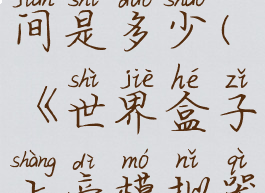 jiān shì duō shǎo
间是多少(
shì jiè hé zǐ
《世界盒子
shàng dì mó nǐ qì
上帝模拟器